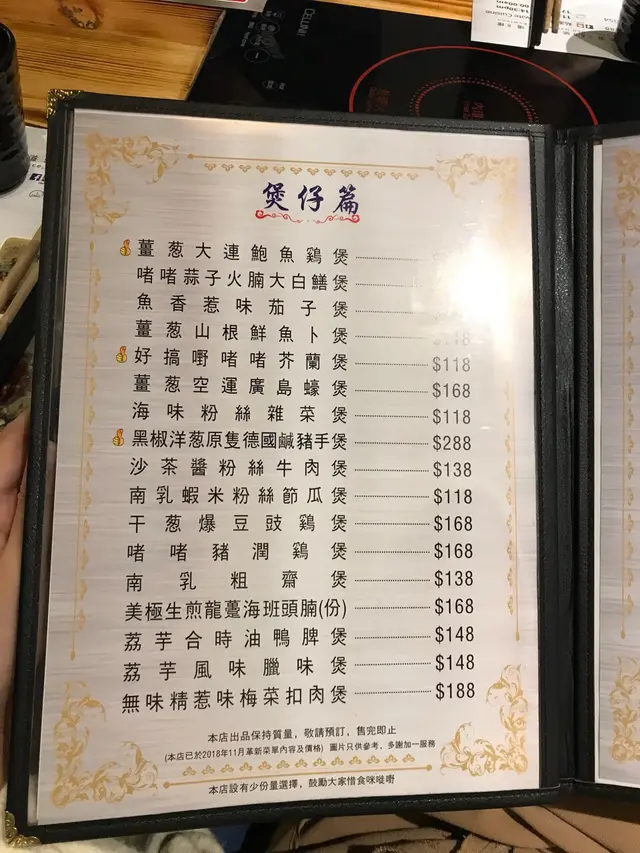 CELLINI
煲仔篇
薑葱大連鮑魚鷄煲
啫啫蒜子火腩大白鱔煲
魚香惹味茄子煲
薑葱山根鮮魚卜煲
好搞嘢啫啫芥蘭煲 $118
薑葱空運廣島蠔煲 $168
海味粉絲雜菜煲 $118
黑椒洋葱原隻德國鹹豬手煲 $288
沙茶醬粉絲牛肉煲 $138
南乳蝦米粉絲節瓜煲 $118
干葱爆豆豉鷄煲 $168
啫啫豬潤鷄煲 $168
南乳粗齋煲 $138
美極生煎龍躉海班頭腩(份) $168
荔芋合時油鴨脾煲 $148
荔芋風味臘味煲 $148
無味精惹味梅菜扣肉煲 $188
本店出品保持質量，敬請預訂，售完即止
(本店已於2018年11月革新菜單內容及價格) 圖片只供參考，多謝加一服務
本店設有少份量選擇，鼓勵大家惜食咪嘥嘢